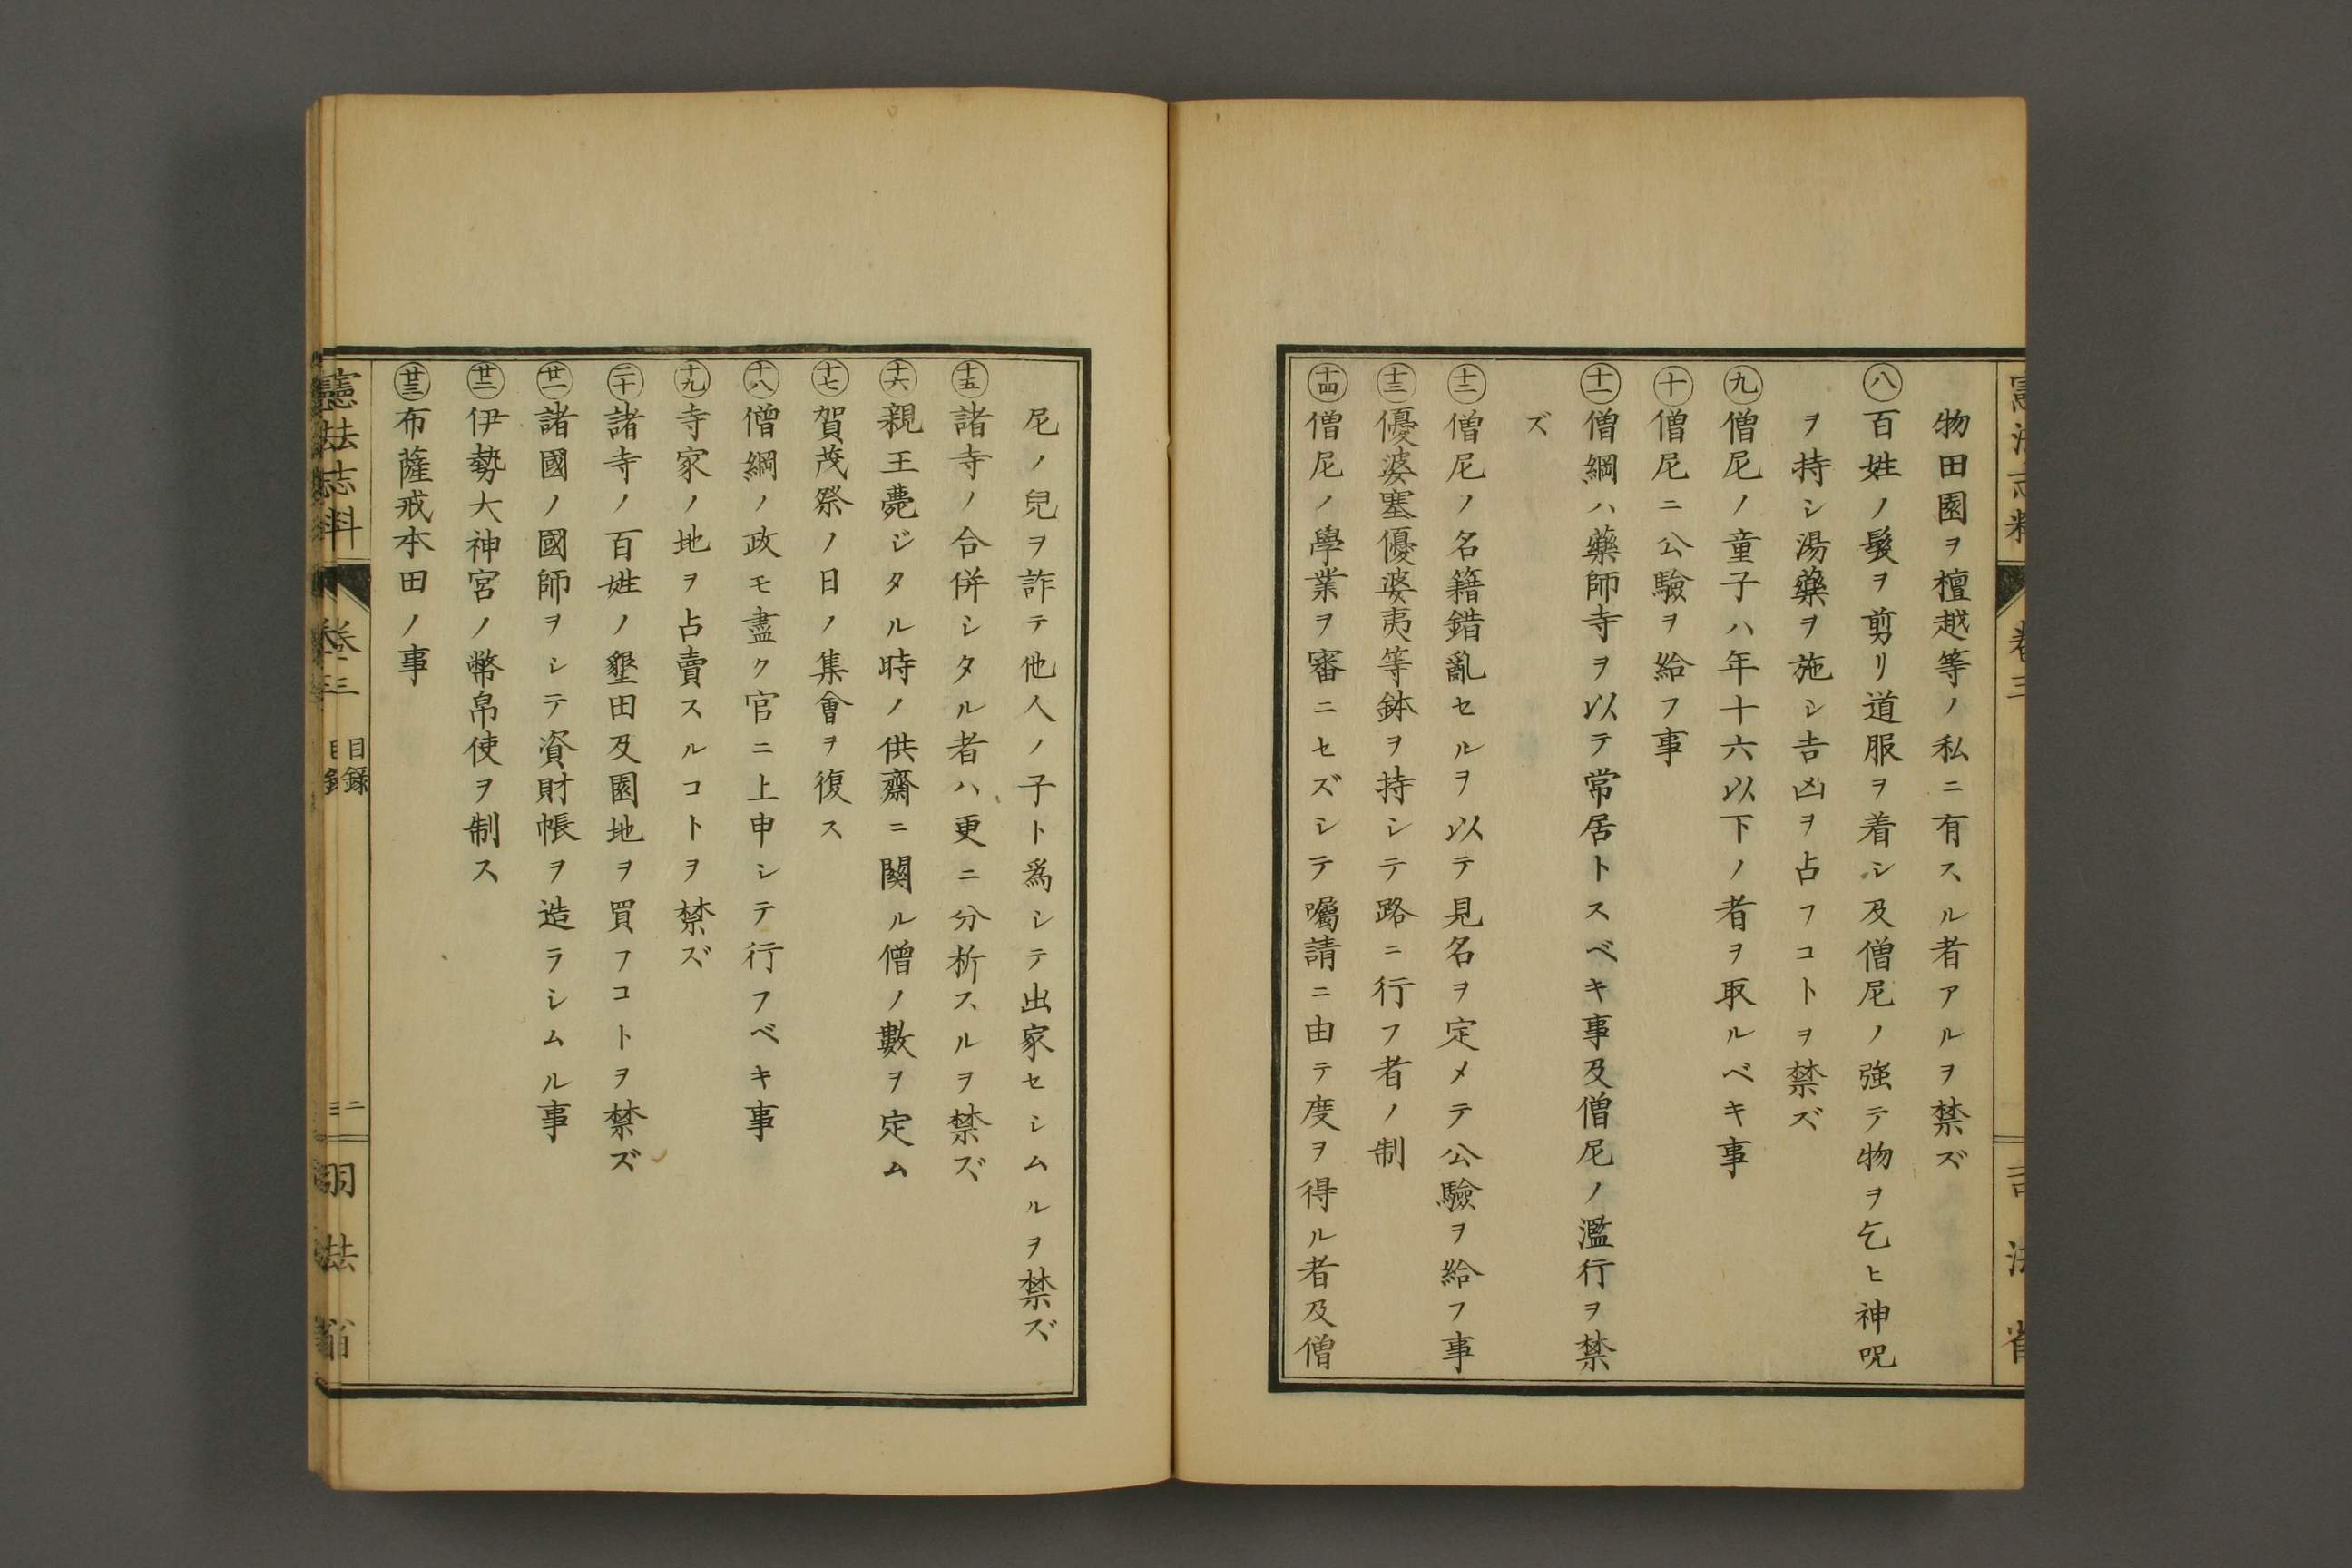 物田園ヲ檀越等ノ私ニ有スル者アルヲ禁ズ
㊇百姓ノ髮ヲ剪リ道服ヲ着シ及僧尼ノ強テ物ヲ乞ヒ神呪
ヲ持シ湯藥ヲ施シ吉凶ヲ占フコトヲ禁ズ
㊈僧尼ノ童子ハ年十六以下ノ者ヲ取ルベキ事
㊉僧尼ニ公驗ヲ給フ事
十一僧綱ハ藥師寺ヲ以テ常居トスベキ事及僧尼ノ濫行ヲ禁
ズ
十二僧尼ノ名籍錯亂セルヲ以テ見名ヲ定メテ公驗ヲ給フ事
十三優婆塞優婆夷等鉢ヲ持シテ路ニ行フ者ノ制
十四僧尼ノ學業ヲ審ニセズシテ囑請ニ由テ度ヲ得ル者及僧
尼ノ兒ヲ詐テ他人ノ子ト爲シテ出家セシムルヲ禁ズ
十五諸寺ノ合併シタル者ハ更ニ分析スルヲ禁ズ
十六親王薨ジタル時ノ供齋ニ關ル僧ノ數ヲ定ム
十七賀茂祭ノ日ノ集會ヲ復ス
十八僧綱ノ政モ盡ク官ニ上申シテ行フベキ事
十九寺家ノ地ヲ占賣スルコトヲ禁ズ
二十諸寺ノ百姓ノ墾田及園地ヲ買フコトヲ禁ズ
廿一諸國ノ國師ヲシテ資財帳ヲ造ラシムル事
廿二伊勢大神宮ノ幣帛使ヲ制ス
廿三布薩戒本田ノ事
憲法志料
卷三
目錄
二